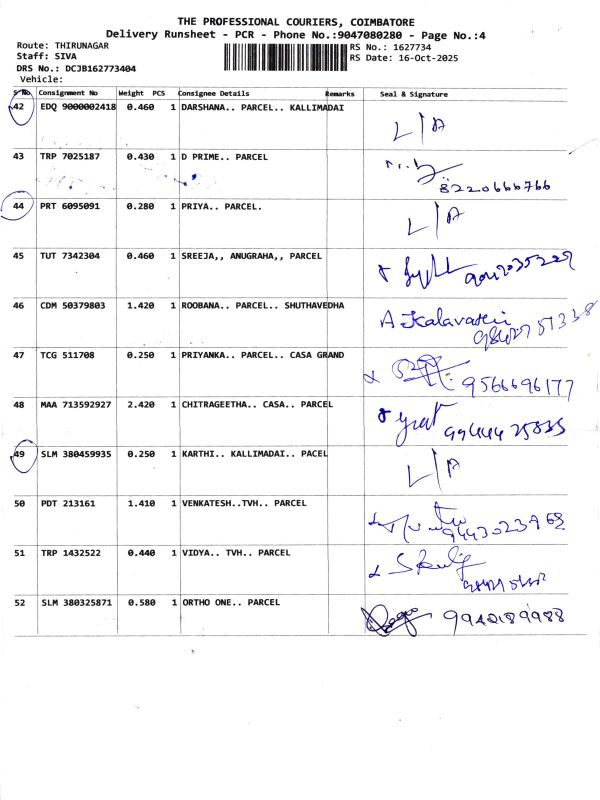 THE PROFESSIONAL COURIERS, COIMBATORE
Delivery Runsheet - PCR - Phone No.:9047080280 - Page No.:4
Route: THIRUNAGAR RS No.: 1627734
Staff: SIVA RS Date: 16-Oct-2025
DRS No.: DCJB162773404
Vehicle:
S No. Consignment No Weight PCS Consignee Details Remarks Seal & Signature
42 EDQ 9000002418 0.460 1 DARSHANA.. PARCEL.. KALLIMADAI L/A
43 TRP 7025187 0.430 1 D PRIME.. PARCEL
8220666766
44 PRT 6095091 0.280 1 PRIYA.. PARCEL. L/A
45 TUT 7342304 0.460 1 SREEJA,, ANUGRAHA,, PARCEL
46 CDM 50379803 1.420 1 ROOBANA.. PARCEL.. SHUTHAVEDHA A. Kalavathi
9842751338
47 TCG 511708 0.250 1 PRIYANKA.. PARCEL.. CASA GRAND
9566696177
48 MAA 713592927 2.420 1 CHITRAGEETHA.. CASA.. PARCEL
49 SLM 380459935 0.250 1 KARTHI.. KALLIMADAI.. PACEL L/A
50 PDT 213161 1.410 1 VENKATESH..TVH.. PARCEL
51 TRP 1432522 0.440 1 VIDYA.. TVH.. PARCEL
52 SLM 380325871 0.580 1 ORTHO ONE.. PARCEL 9942189988